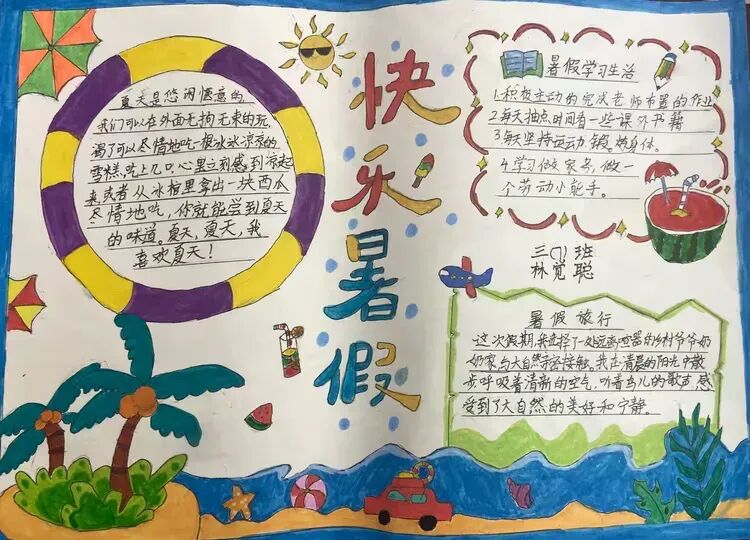 快乐暑假
夏天是悠闲惬意的，
我们可以在外面无拘无束的玩，
渴了可以尽情地吃一根冰冰凉凉的
雪糕，吃上几口，心里立刻感到凉起
来，或者从冰箱里拿出一块西瓜
尽情地吃，你就能尝到夏天
的味道。夏天，夏天，我
喜欢夏天！
暑假学习生活
1.积极主动的完成老师布置的作业
2.每天抽点时间看一些课外书籍
3.每天坚持运动，锻炼身体。
4.学习做家务，做一
个劳动小能手。
三(7)班
林觉聪
暑假旅行
这次假期，我选择了一处远离喧嚣的乡村爷爷奶
奶家，与大自然亲密接触。我在清晨的阳光中散
步呼吸着清新的空气，听着鸟儿的歌声，感
受到了大自然的美好和宁静。